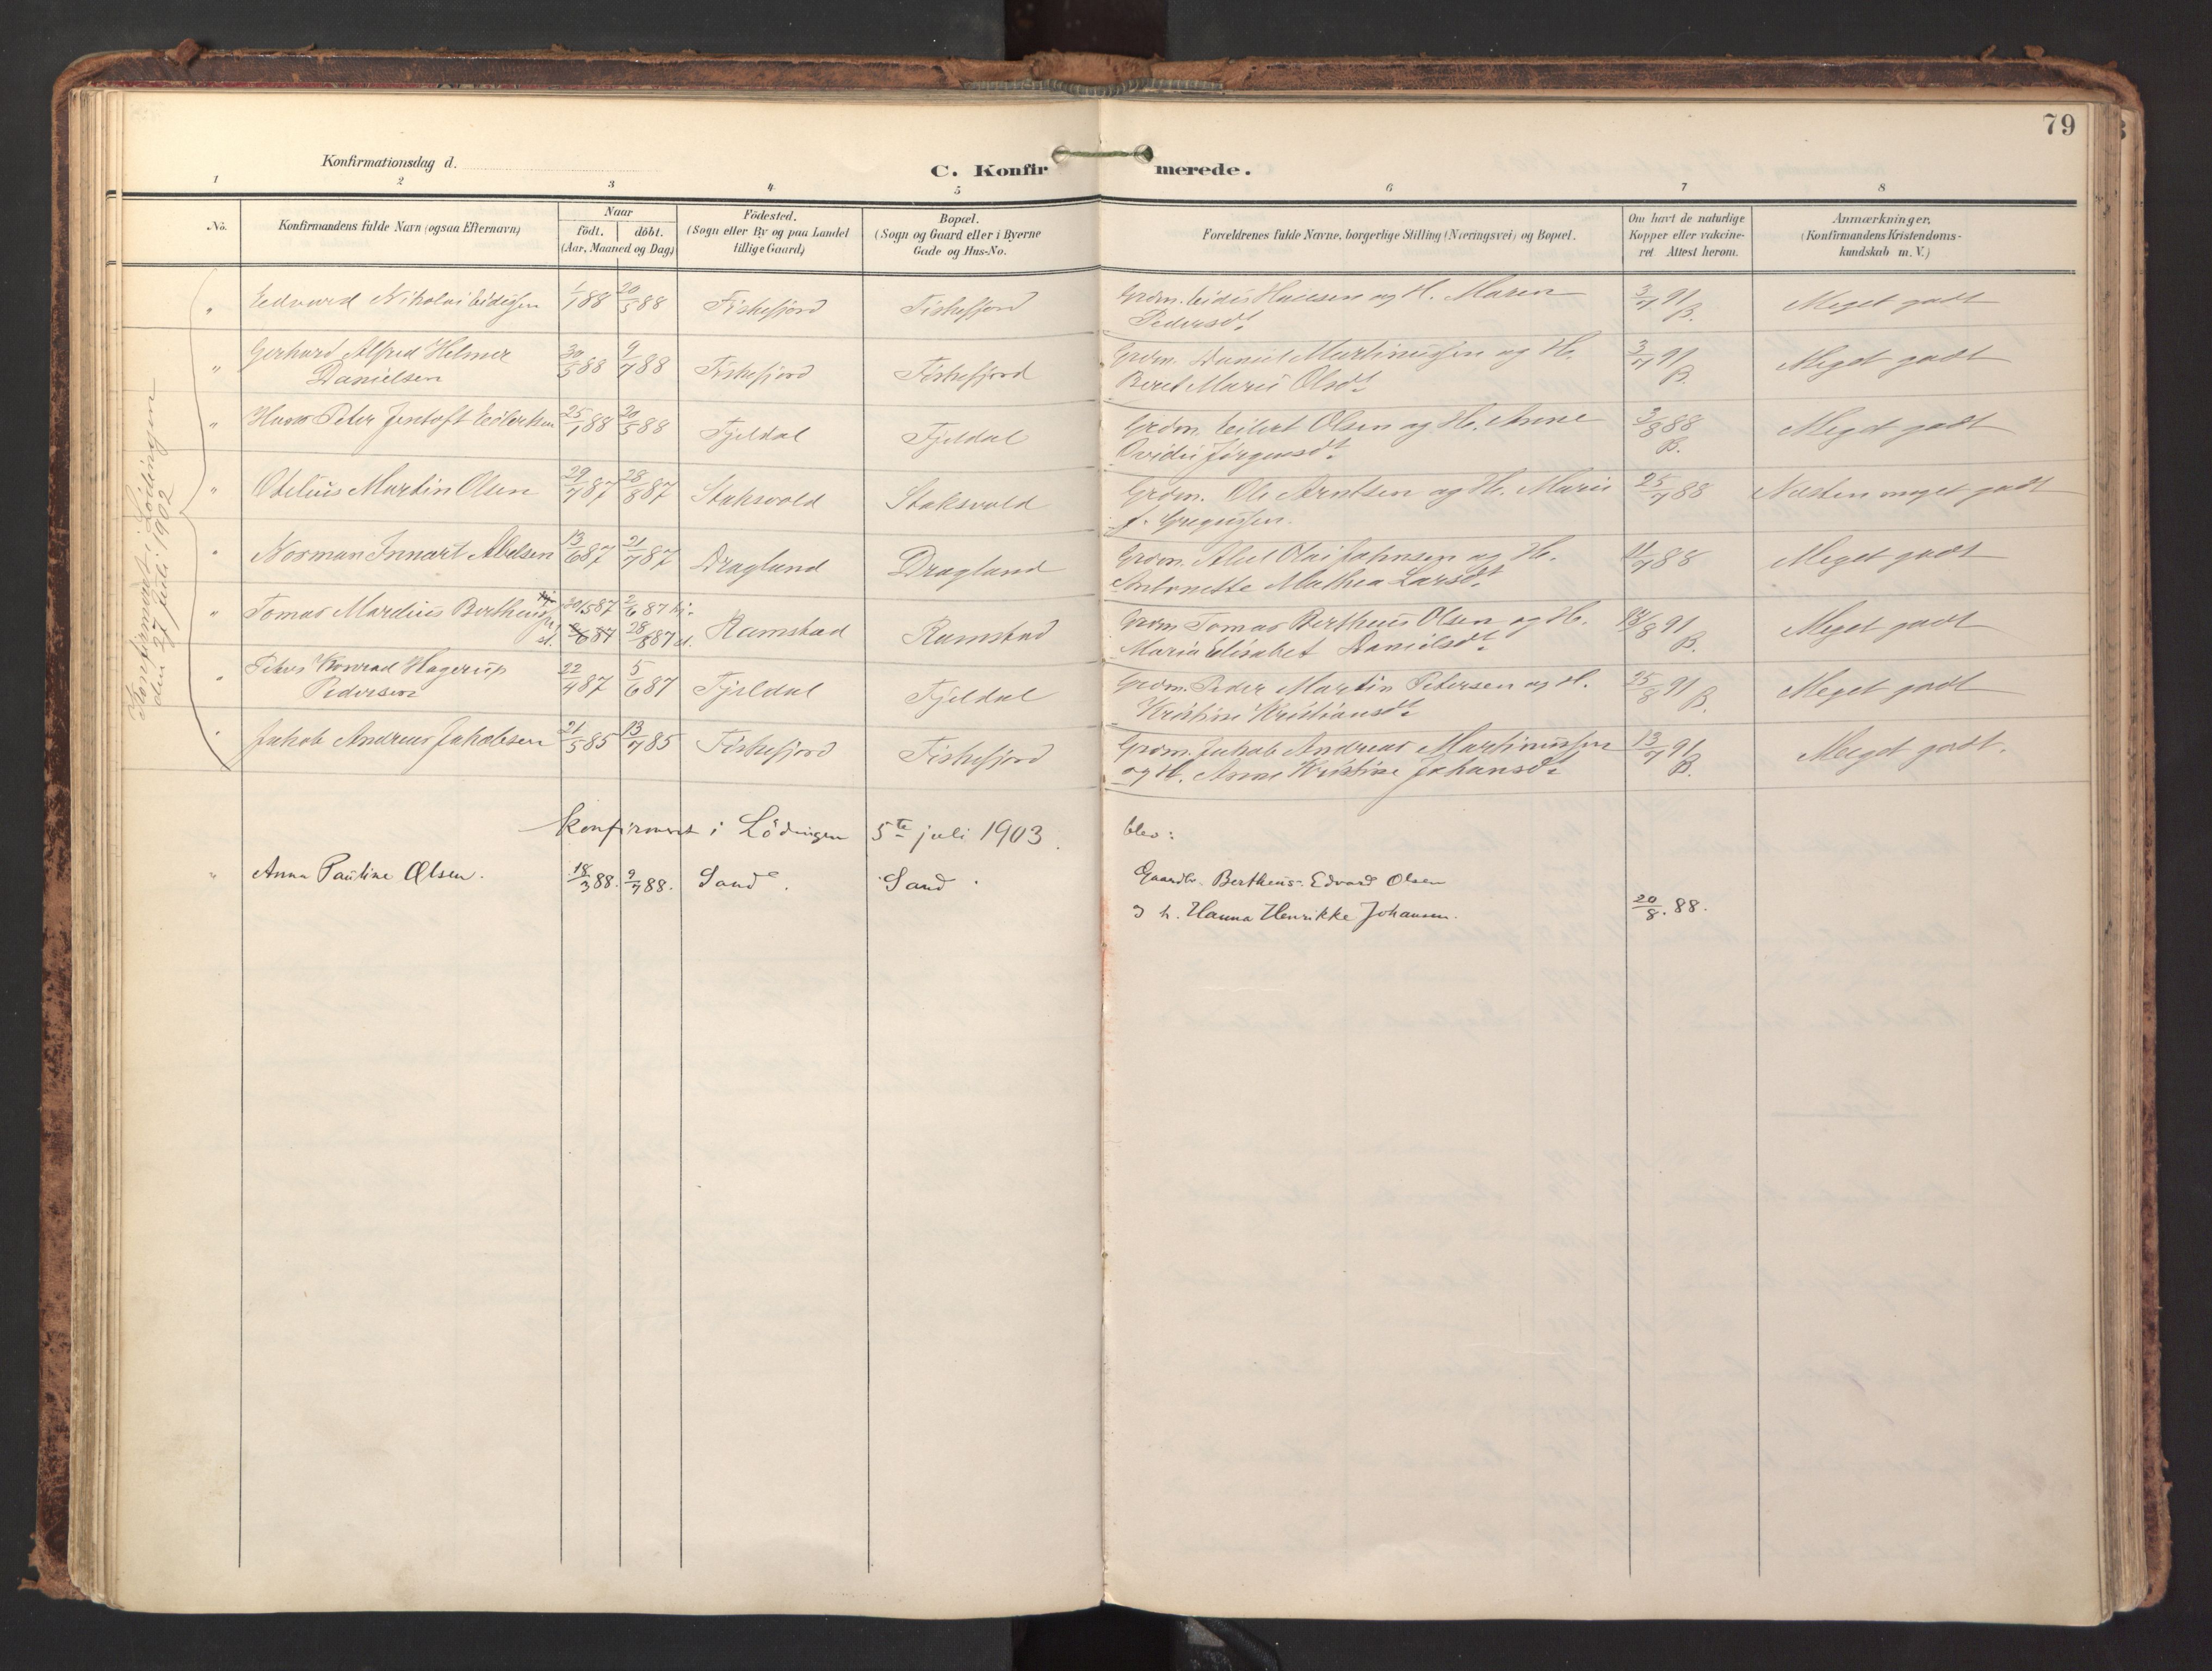 79
Konfirmationsdag d.
C. Konfirmerede.
1 2 3 4 5 6 7 8
No. Konfirmandens fulde Navn (ogsaa Efternavn) Naar födt. döbt. (Aar, Maaned og Dag) Födested. (Sogn eller By og paa Landet tillige Gaard) Bopæl. (Sogn og Gaard eller i Byerne Gade og Hus-No. Forældrenes fulde Navne, borgerlige Stilling (Næringsvei) og Bopæl. Om havt de naturlige Kopper eller vakcineret Attest herom. Anmærkninger. (Konfirmandens Kristendomskundskab m. V.)
Konfirmeret i Lödingen
den 27 juli 1902
" Edvard Nikolai Eidissen 1/1 88 20/5 88 Fiskefjord Fiskefjord Grdm. Eidis Hansen og H. Maren 3/7 91 Meget godt
Pedersdt. B.
" Gerhard Alfred Helmer 30/5 88 9/7 88 Fiskefjord Fiskefjord Grdm. Daniel Martinussen og H. 3/7 91 Meget godt
Danielsen Beret Marie Olsdt. B.
" Hans Peter Jentoft Eilertsen 25/1 88 20/5 88 Fjeldal Fjeldal Grdm. Eilert Olsen og H. Anne 3/8 88 Meget godt
Ovidie Jörgensdt. B.
" Otelius Martin Olsen 29/7 87 28/8 87 Staksvold Staksvold Grdm. Ole Arntsen og H. Marie 25/7 88 Næsten meget godt
f. Gregussen.
" Norman Innart Abelsen 13/6 87 21/7 87 Dragland Dragland Grdm. Abel Olai Johnsen og H. 11/7 88 Meget godt
Antonette Mathea Larsdt.
" Tomas Mardius Bertheus 30/5 87 2/6 87 hj. Ramstad Ramstad Grdm. Tomas Bertheus Olsen og H. 12/8 91 Meget godt
28/8 87 st. Maria Elisabet Danielsdt. B.
" Petrus Konrad Hagerup 22/4 87 5/6 87 Fjeldal Fjeldal Grdm. Peder Martin Petersen og H. 25/8 91 Meget godt
Pedersen Kristine Kristiansdt. B.
" Jakob Andreas Jakobsen 21/5 85 13/7 85 Fiskefjord Fiskefjord Grdm. Jakob Andreas Martinussen 13/7 91 Meget godt.
og H. Anne Kristine Johansdt. B.
Konfirmeret i Lödingen 5te juli 1903. blev:
" Anna Pauline Olsen. 18/3 88. 9/7 88. Sand. Sand. Gaardbr. Bertheus Edvard Olsen
og h. Hanna Henrikke Johansen. 20/8. 88.